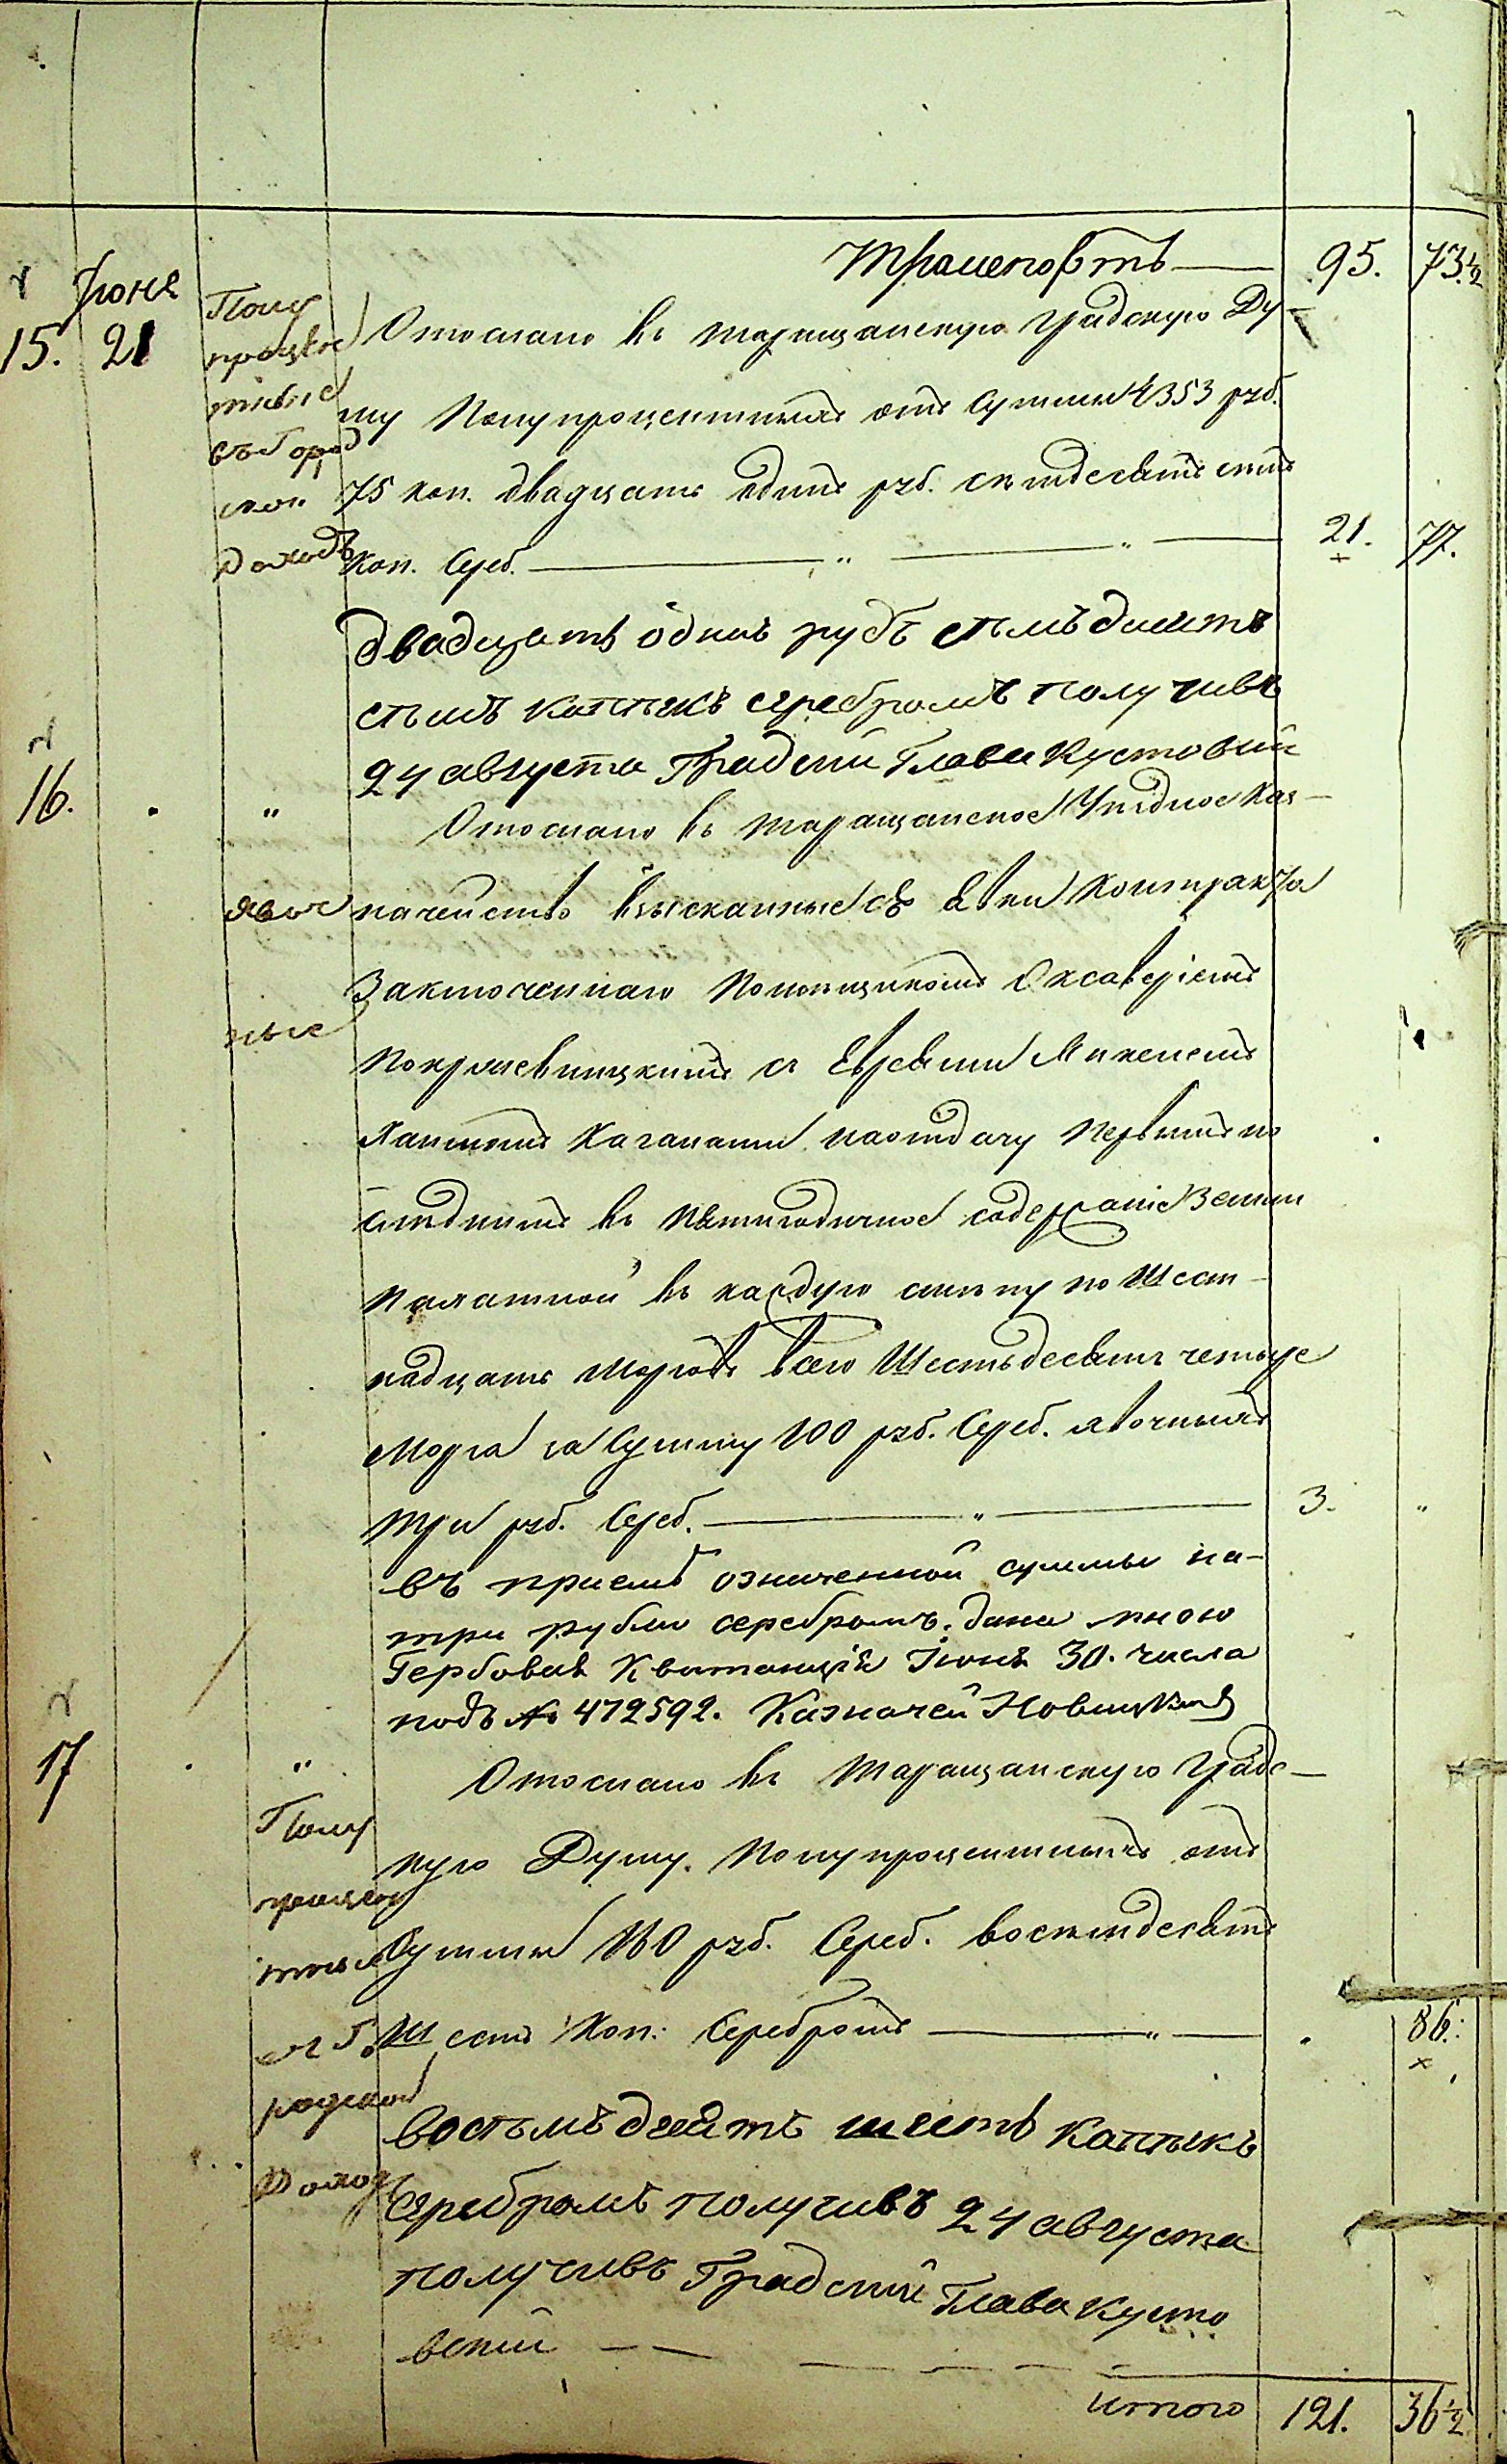 Транспортъ — 95. 73.½
Июня
15. 21
Полу
процен
тные
въ Город
ской
Доходъ
Отослано въ Таращанскую Градскую Ду-
му Полупроцентныхъ отъ Суммы 4353 руб.
75 коп. двадцать одинъ руб. семдесятъ семь
Коп. Сереб. — „ — „ — 21. 77.
двадцать одинъ рубъ семъдисятъ
семъ копѣикъ серебромъ получивъ
24 августа Градский Глава Кустовский
16. „
явоч
ные
Отослано въ Таращанское Уѣздное Каз-
начейство взысканные съ Явки Контракта
Заключеннаго Помѣщикомъ Оксаверіемъ
с Евреями
Каганами на отдачу Первымъ по
слѣднимъ въ Пятигодичное содержаніе Земли
въ каждую смѣну по Шест-
надцать Морговъ всего Шестьдесятъ четыре
Морга за Сумму 100 руб. Сереб. явочныхъ
Три руб. Сереб. — „ — 3. „
въ приемѣ означенной суммы на-
три рубли серебромъ. дана мною
Гербовая Квитанція Іюня 30. числа
подъ № 472592. Казначей Новицкий
17 „
Полу
процен
тные
въ Го
родской
Доходъ
Отослано въ Таращанскую Град-
кую Думу. Полупроцентныхъ отъ
Суммы 160 руб. Сереб. восемдесятъ
Шесть Коп: Серебромъ — „ — . 86.
восемъдисятъ шесть копѣикъ
серебромъ получивъ 24 августа
получивъ Градский Глава Кусто
вский — —
итого 121. 36½